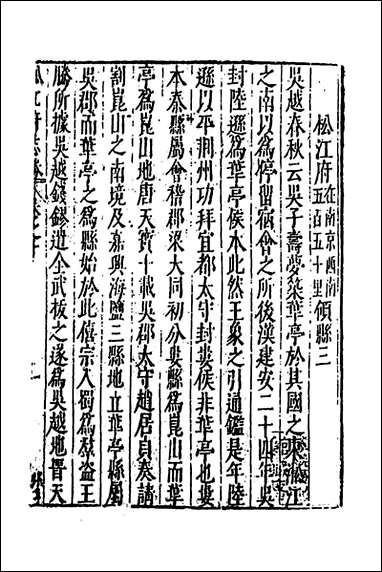 松江府在南京西南五百五十里領縣三
吳越春秋云吳子壽夢築華亭於其國之東松江
之南以爲停留宿會之所後漢建安二十四年吳
封陸遜爲華亭侯本此然王象之引通鑑是年陸
遜以平荆州功拜宜都太守封婁侯非華亭也婁
本秦縣屬會稽郡梁大同初分婁縣爲崑山而華
亭爲崑山地唐天寶十載吳郡太守趙居貞奏請
割崑山之南境及嘉興海鹽三縣地立華亭縣屬
吳郡而華亭之爲縣始於此僖宗入蜀爲羣盜王
騰所據吳越錢鏐遣全武拔之遂爲吳越地晋天